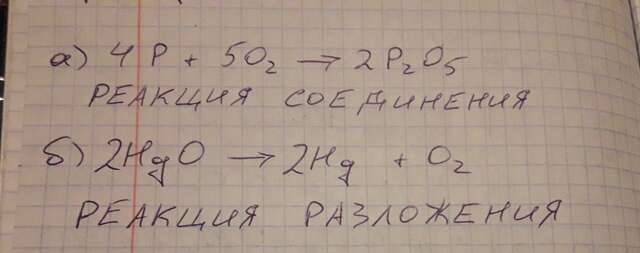 а) 4P + 5O₂ → 2P₂O₅
РЕАКЦИЯ СОЕДИНЕНИЯ
б) 2HgO → 2Hg + O₂
РЕАКЦИЯ РАЗЛОЖЕНИЯ